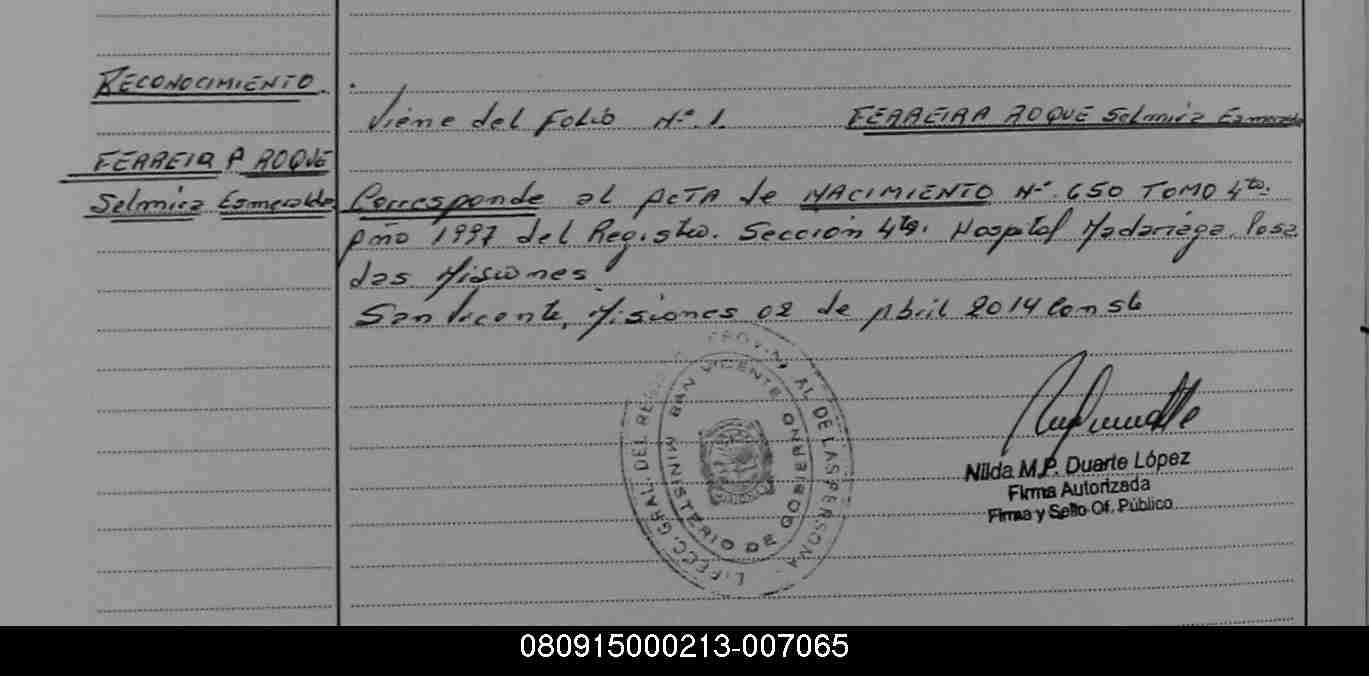 RECONOCIMIENTO.
FERREIRA ROQUE
Selmira Esmeralda
Viene del Folio Nº. 1. FERREIRA ROQUE Selmira Esmeralda
Corresponde al ACTA de NACIMIENTO Nº. 650 TOMO 4to.
Año 1997 del Registro. Sección 4ta. Hospital Madariaga. Posa
das Misiones
San Vicente, Misiones 02 de Abril 2014 Conste
GRAL. DEL PROVIN AL DE LAS PERSONA
MINISTERIO DE GOBIERNO
SAN VICENTE
Nilda M.P. Duarte López
Firma Autorizada
Firma y Sello Of. Público
080915000213-007065